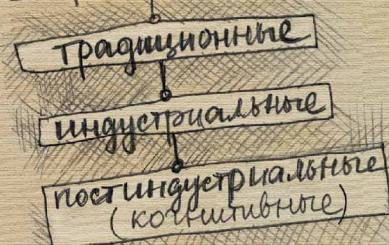 традиционные
индустриальные
постиндустриальные
(когнитивные)